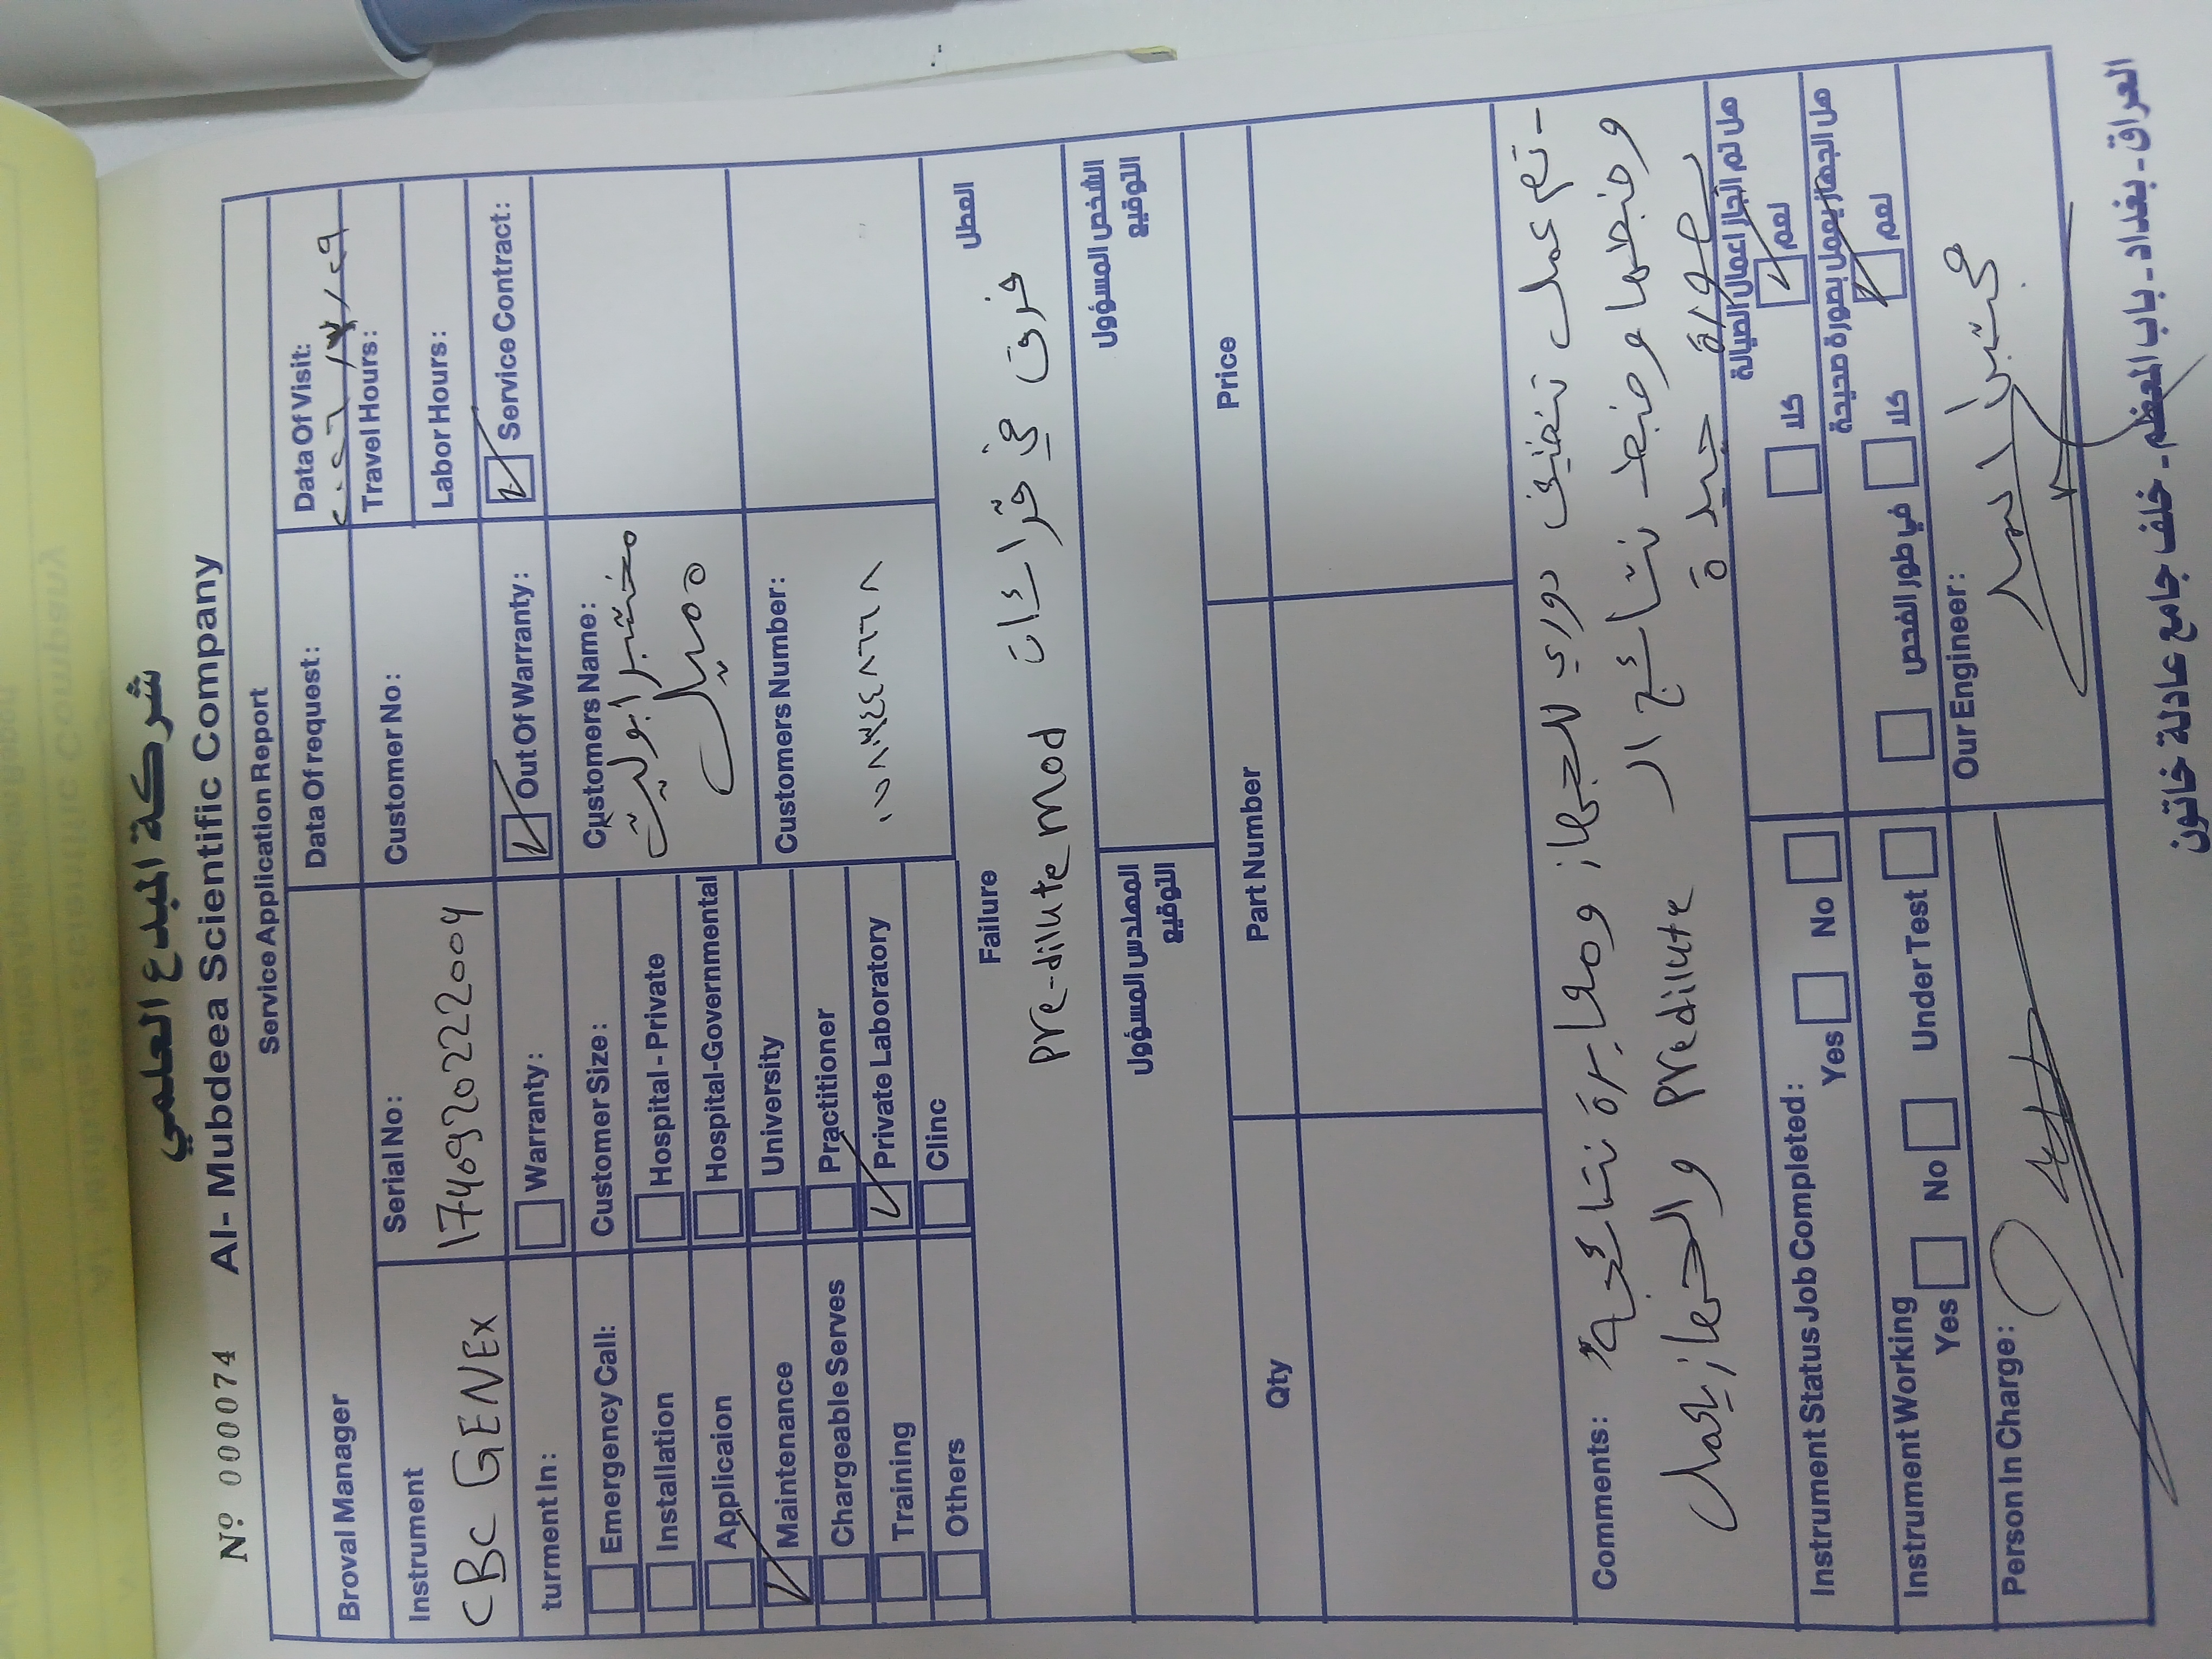 شركة المبدع العلمي
Nº 000074 Al- Mubdeea Scientific Company
Service Application Report
Broval Manager
Data Of request:
Data Of Visit:
Travel Hours:
Instrument
CBC GENEX
Serial No:
Customer No:
Labor Hours:
turment In:
Warranty:
Out Of Warranty:
Service Contract:
Emergency Call:
Installation
Applicaion
Maintenance
Chargeable Serves
Training
Others
Customer Size:
Hospital - Private
Hospital-Governmental
University
Practitioner
Private Laboratory
Clinc
Customers Name:
مختبر ابوليت
Customers Number:
Failure
العطل
Pre-dilute mod فرق في قراءات
المهندس المسؤول
التوقيع
الشخص المسؤول
التوقيع
Qty
Part Number
Price
Comments:
- تم عمل تنضيف دوري للجهاز ومعايرة نتائجه
وضبطها وضبط نتائج ال Predilute والجهاز يعمل
بصورة جيدة
Instrument Status Job Completed:
Yes
No
هل تم انجاز اعمال الصيانة
كلا
نعم
Instrument Working
Yes
No
Under Test
هل الجهاز يعمل بصورة صحيحة
في طور الفحص
كلا
نعم
Person In Charge:
Our Engineer:
العراق - بغداد - باب المعظم - خلف جامع عادلة خاتون